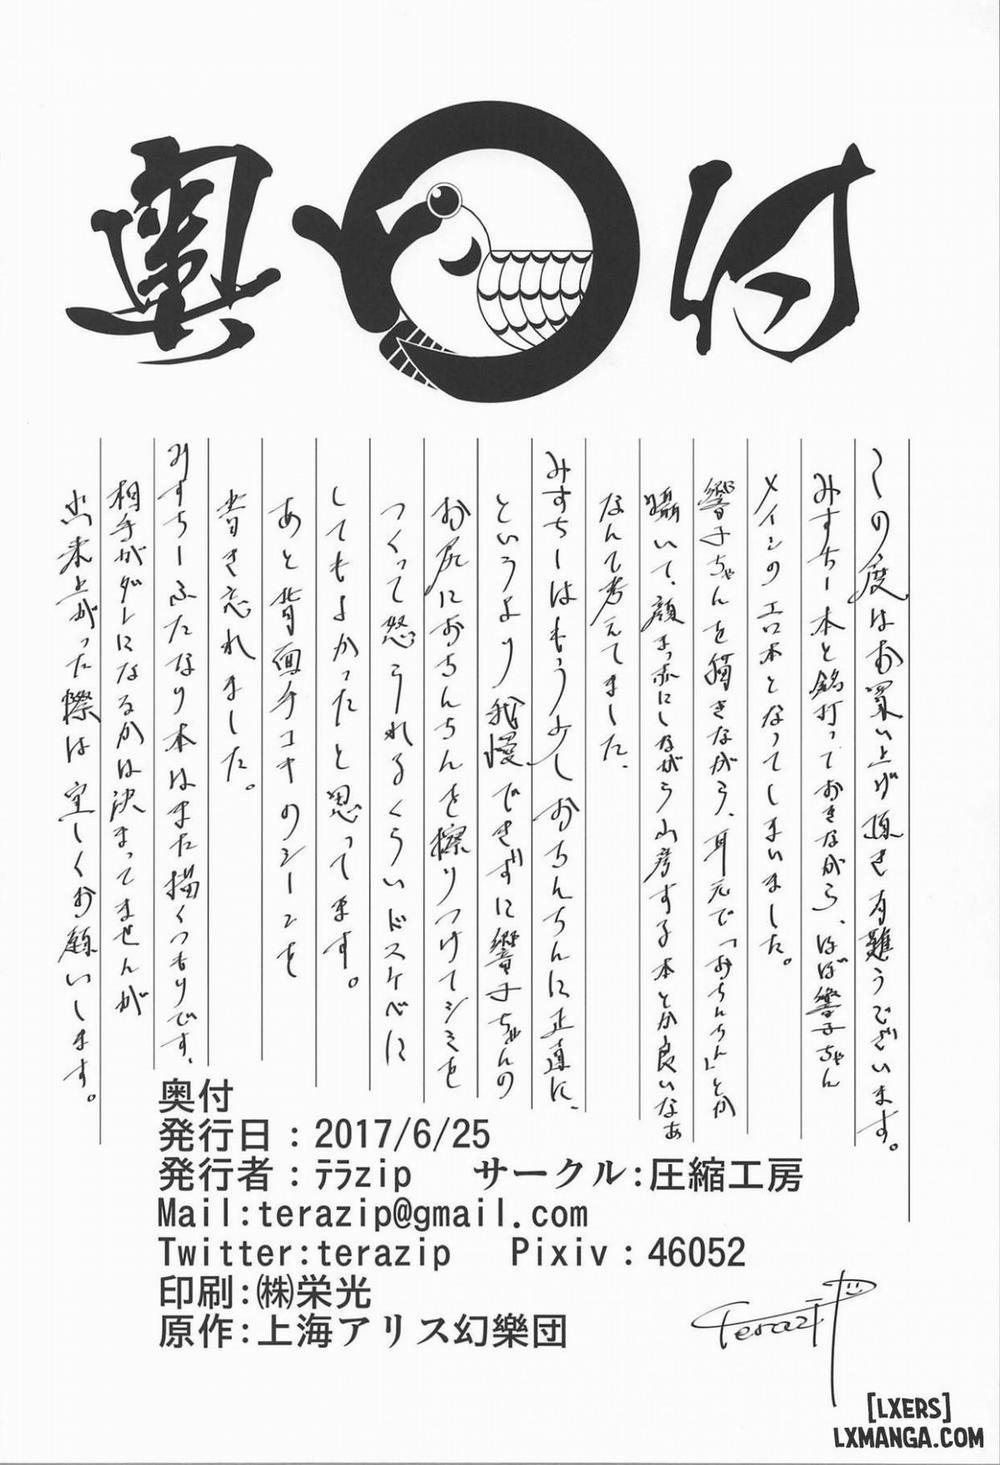 奥付
この度はお買い上げ頂き有難うございます。
みすちー本と銘打っておきながら、ほぼ響子ちゃん
メインのエロ本となってしまいました。
響子ちゃんを描きながら、耳元で「おちんちん」とか
囁いて、顔まっ赤にしながら山彦する本とか良いなぁ
なんて考えてました、
みすちーはもう少しおちんちんに正直に、
というより我慢できずに響子ちゃんの
お尻におちんちんを擦りつけてシミを
つくって怒られるくらいドスケベに
してもよかったと思ってます。
あと背面手コキのシーンを
書き忘れました。
みすちーふたなり本はまた描くつもりです、
相手がダレになるかは決まってませんが
出来上がった際は宜しくお願いします。
奥付
発行日：2017/6/25
発行者：ﾃﾗzip サークル:圧縮工房
Mail:terazip@gmail.com
Twitter:terazip Pixiv：46052
印刷:㈱栄光
原作:上海アリス幻樂団
terazip
[LXERS]
LXMANGA.COM